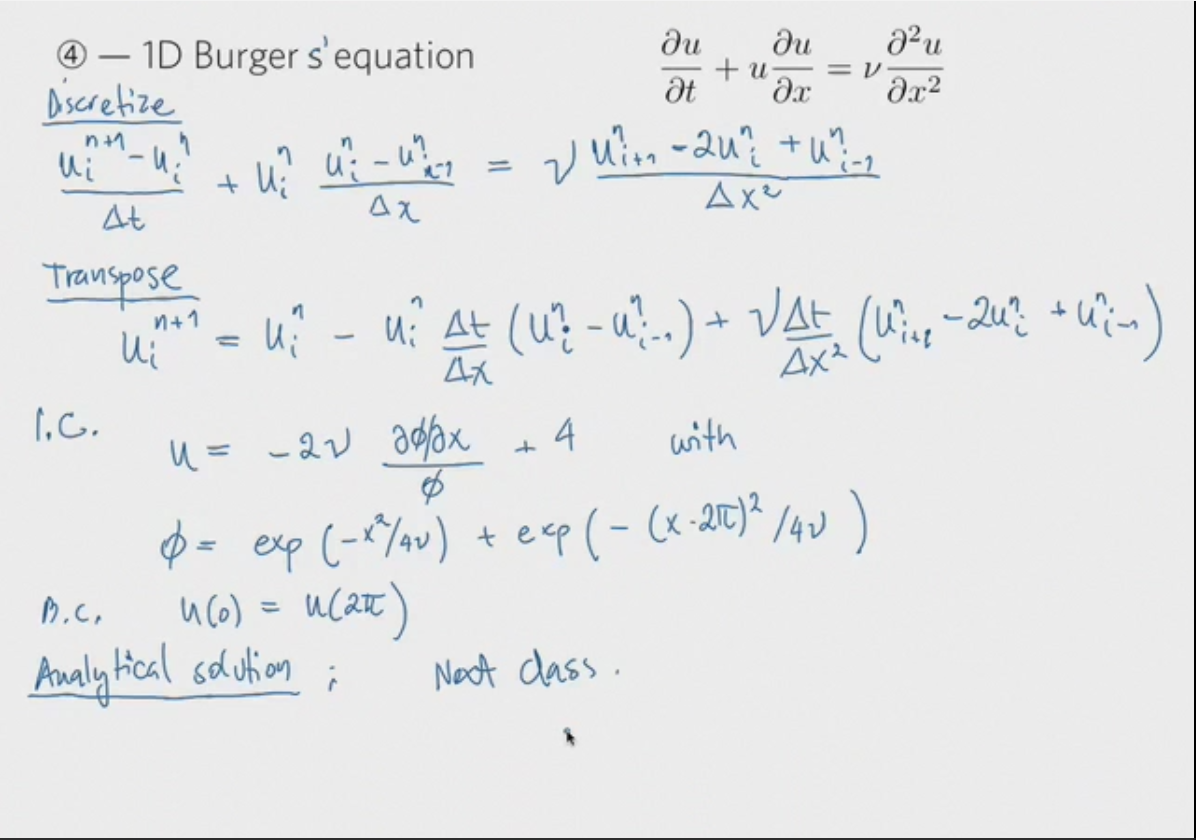 ④ — 1D Burger s'equation ∂u/∂t + u ∂u/∂x = ν ∂²u/∂x²
Discretize
(uᵢⁿ⁺¹ - uᵢⁿ)/Δt + uᵢⁿ (uᵢⁿ - uᵢ₋₁ⁿ)/Δx = ν (uᵢ₊₁ⁿ - 2uᵢⁿ + uᵢ₋₁ⁿ)/Δx²
Transpose
uᵢⁿ⁺¹ = uᵢⁿ - uᵢⁿ Δt/Δx (uᵢⁿ - uᵢ₋₁ⁿ) + ν Δt/Δx² (uᵢ₊₁ⁿ - 2uᵢⁿ + uᵢ₋₁ⁿ)
I.C. u = -2ν (∂ϕ/∂x)/ϕ + 4 with
ϕ = exp (-x²/4ν) + exp (- (x-2π)² /4ν )
B.C. u(0) = u(2π)
Analytical solution : Next class .